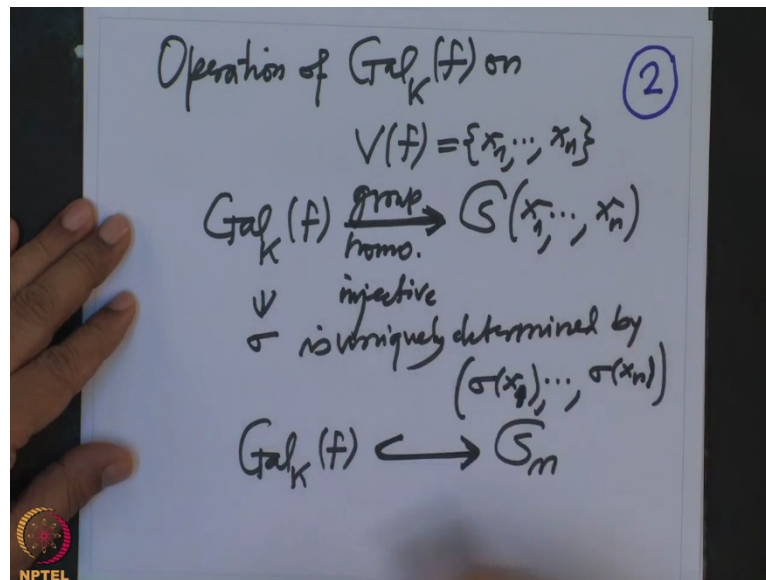 Operation of Gal_K(f) on
2
V(f) = {x_1, ..., x_n}
Gal_K(f) group homo. ⟶ 𝔖(x_1, ..., x_n)
ψ injective
σ is uniquely determined by
(σ(x_1), ..., σ(x_n))
Gal_K(f) ↪ 𝔖_n
NPTEL